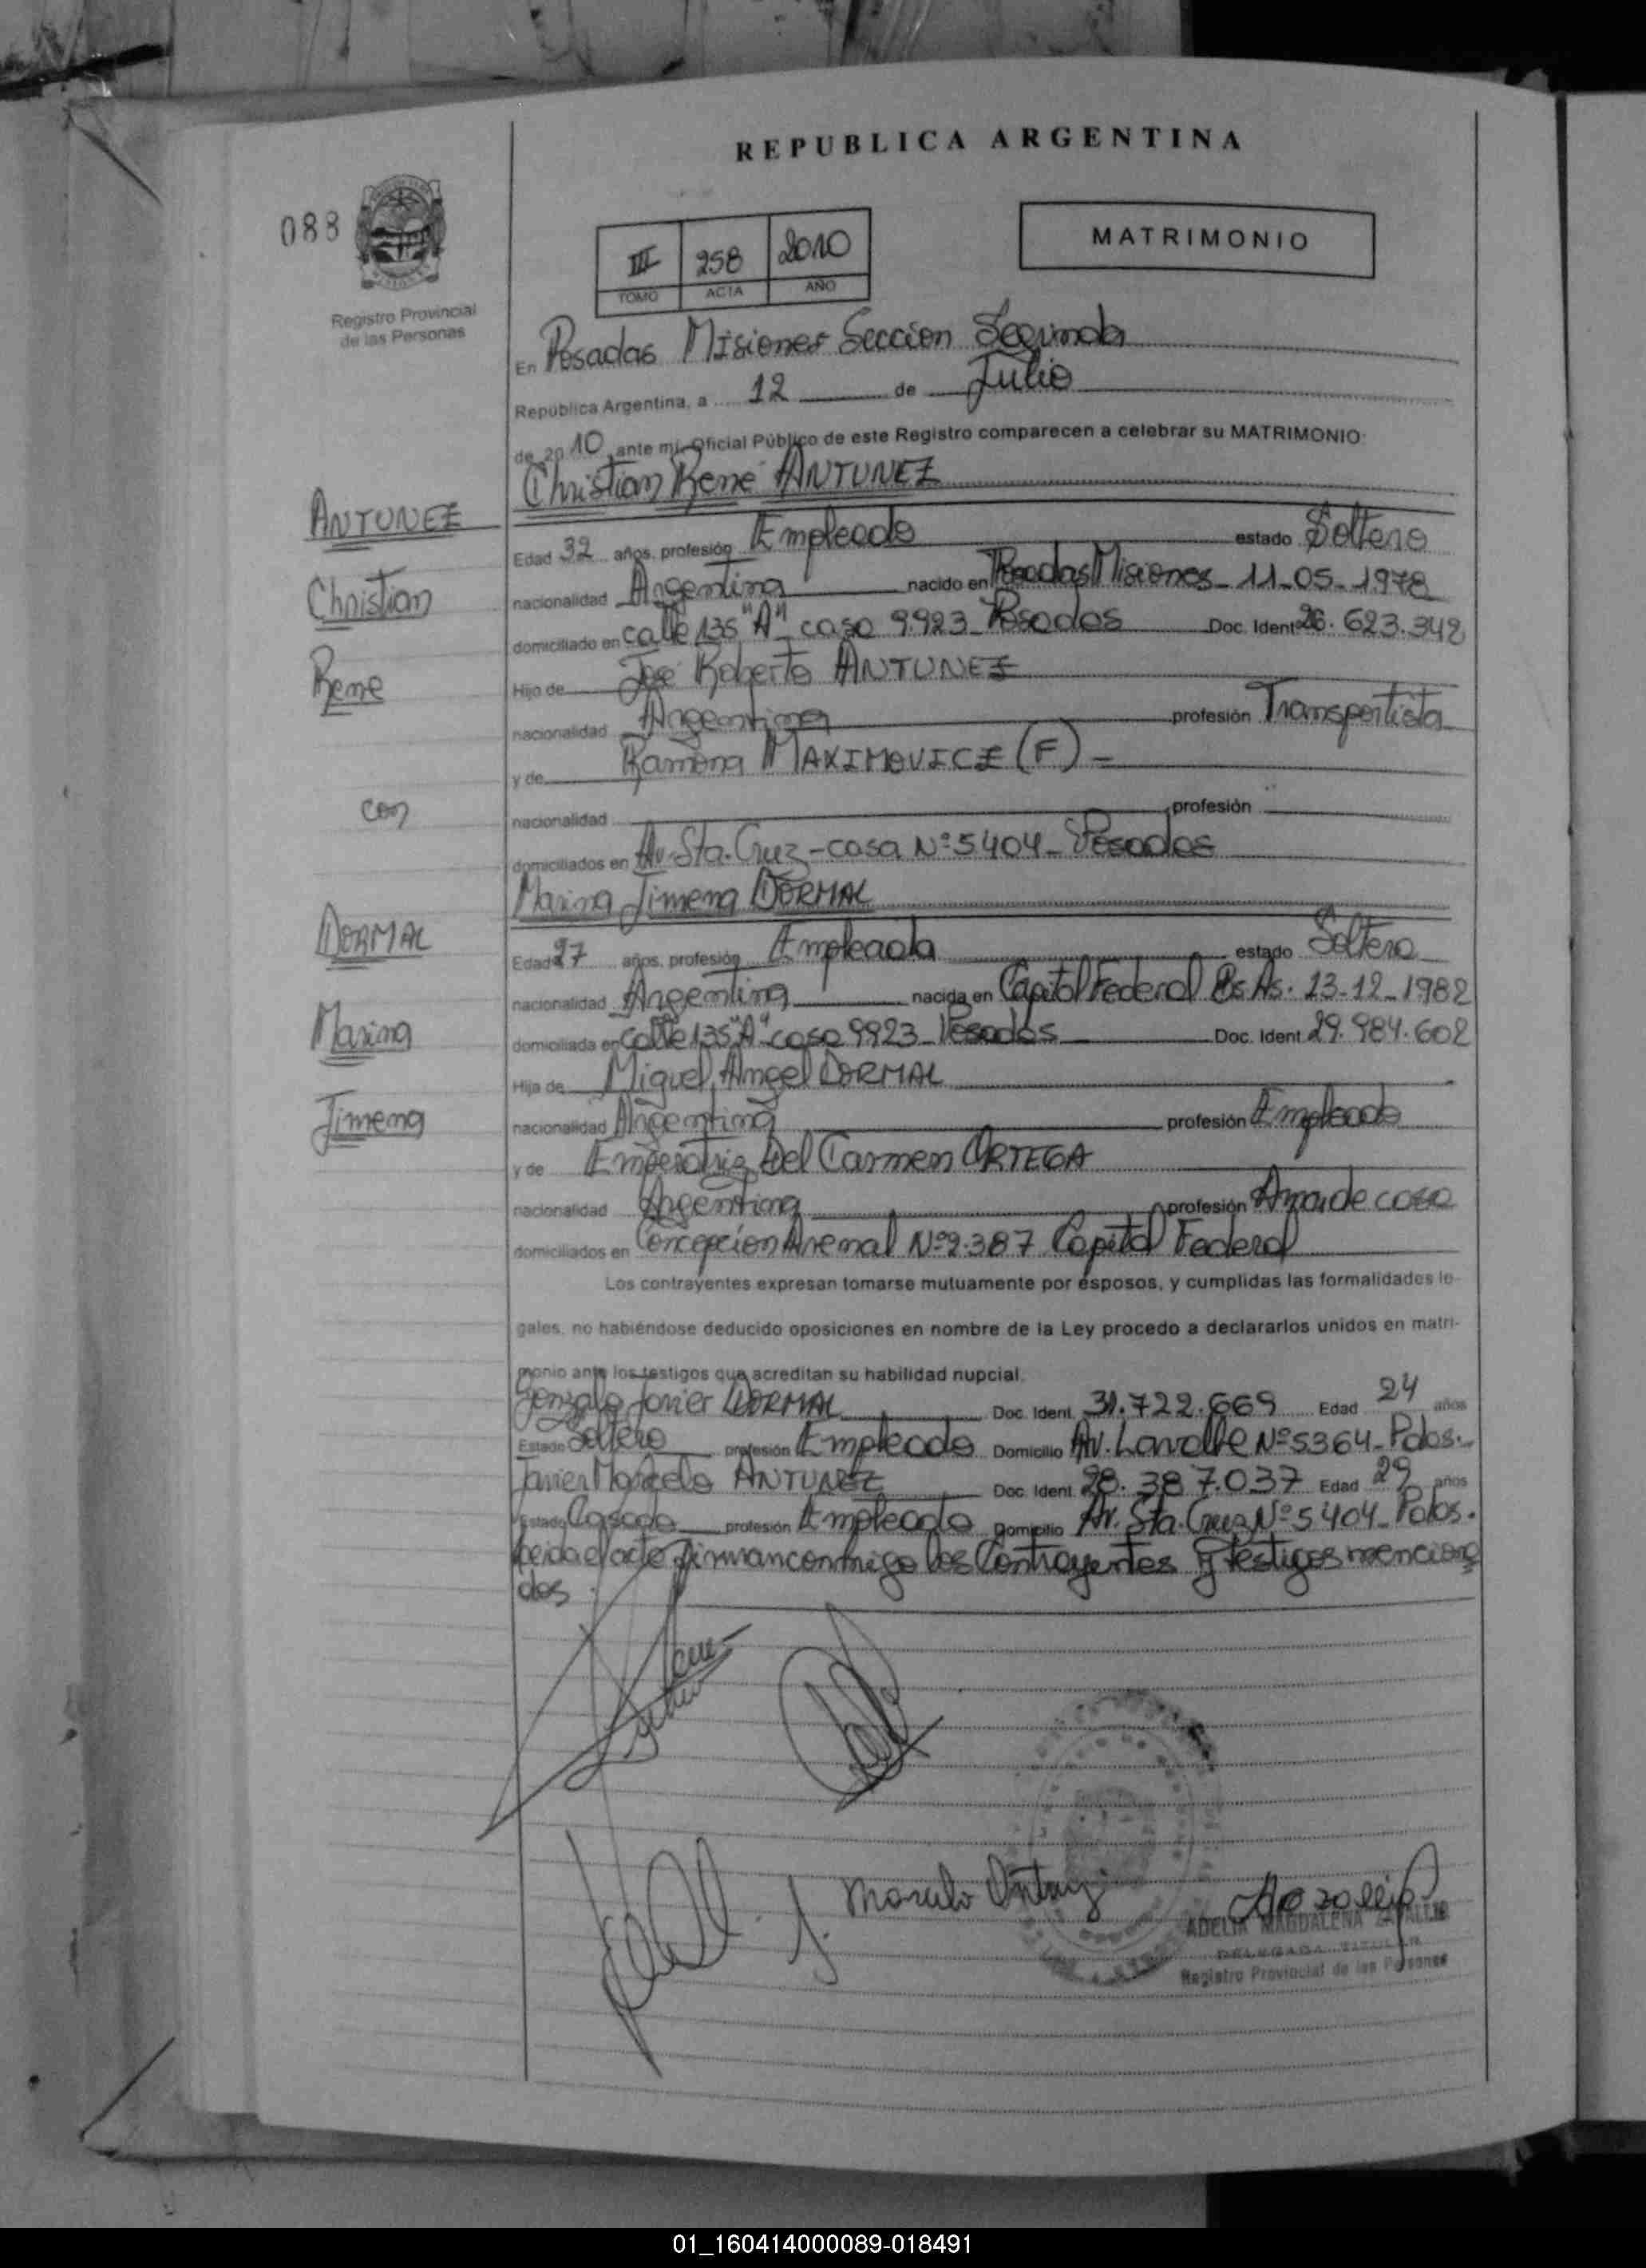 REPUBLICA ARGENTINA
088
III 258 2010
TOMO ACTA AÑO
MATRIMONIO
Registro Provincial
de las Personas
En Posadas Misiones Seccion Segunda
República Argentina, a 12 de Julio
de 2010, ante mi, Oficial Público de este Registro comparecen a celebrar su MATRIMONIO:
Christian Rene ANTUNEZ
ANTUNEZ
Edad 32 años, profesión Empleado estado Soltero
Christian
nacionalidad Argentina nacido en Posadas Misiones - 11-05-1978
domiciliado en calle 135 "A" casa 9923 - Posadas Doc. Ident. 26.623.342
Rene
Hijo de José Roberto ANTUNEZ
nacionalidad Argentina profesión Transportista
y de Ramona MAXIMOVICZ (F) -
con
nacionalidad profesión
domiciliados en Av. Sta. Cruz - casa Nº 5404 - Posadas
Marina Jimena DORMAL
DORMAL
Edad 27 años, profesión Empleada estado Soltera
nacionalidad Argentina nacida en Capital Federal Bs As. 23-12-1982
Marina
domiciliada en calle 135 "A" casa 9923 - Posadas Doc. Ident. 29.984.602
Hija de Miguel Angel DORMAL
Jimena
nacionalidad Argentina profesión Empleado
y de Emperatriz Del Carmen ORTEGA
nacionalidad Argentina profesión Ama de casa
domiciliados en Concepción Arenal Nº 2.387 Capital Federal
Los contrayentes expresan tomarse mutuamente por esposos, y cumplidas las formalidades le-
gales, no habiéndose deducido oposiciones en nombre de la Ley procedo a declararlos unidos en matri-
monio ante los testigos que acreditan su habilidad nupcial.
Gonzalo Javier DORMAL Doc. Ident. 31.722.669 Edad 24 años
Estado Soltero profesión Empleado Domicilio Av. Lavalle Nº 5364 - Pdas.-
Javier Marcelo ANTUNEZ Doc. Ident. 28.387.037 Edad 29 años
Estado Casado profesión Empleado Domicilio Av. Sta. Cruz Nº 5404 - Pdas.
leida el acto firman conmigo los Contrayentes y testigos menciona
dos.
J. Marcelo Antunez
ADELIA MAGDALENA
DELEGADA TITULAR
Registro Provincial de las Personas
01_160414000089-018491